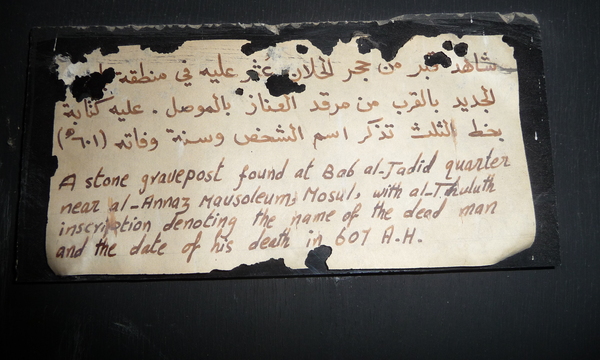 شاهد قبر من حجر الحلان عثر عليه في منطقة
الجديد بالقرب من مرقد العناز بالموصل . عليه كتابة
بخط الثلث تذكر اسم الشخص وسنة وفاته (٦٠١هـ)
A stone gravepost found at Bab al-Jadid quarter
near al-Annaz Mausoleum, Mosul, with al-Thuluth
inscription denoting the name of the dead man
and the date of his death in 601 A.H.